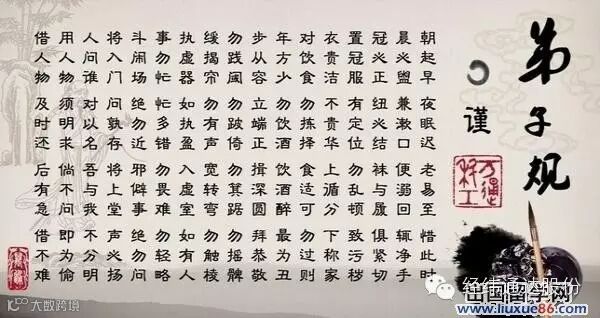 弟子规
谨
朝起早 夜眠迟 老易至 惜此时
晨必盥 兼漱口 便溺回 辄净手
冠必正 纽必结 袜与履 俱紧切
置冠服 有定位 勿乱顿 致污秽
衣贵洁 不贵华 上循分 下称家
对饮食 勿拣择 食适可 勿过则
年方少 勿饮酒 饮酒醉 最为丑
步从容 立端正 揖深圆 拜恭敬
勿践阈 勿跛倚 勿箕踞 勿摇髀
缓揭帘 勿有声 宽转弯 勿触棱
执虚器 如执盈 入虚室 如有人
事勿忙 忙多错 勿畏难 勿轻略
斗闹场 绝勿近 邪僻事 绝勿问
将入门 问孰存 将上堂 声必扬
人问谁 对以名 吾与我 不分明
用人物 须明求 倘不问 即为偷
借人物 及时还 后有急 借不难
大数跨境
经纬通达股份
出国留学网
www.liuxue86.com